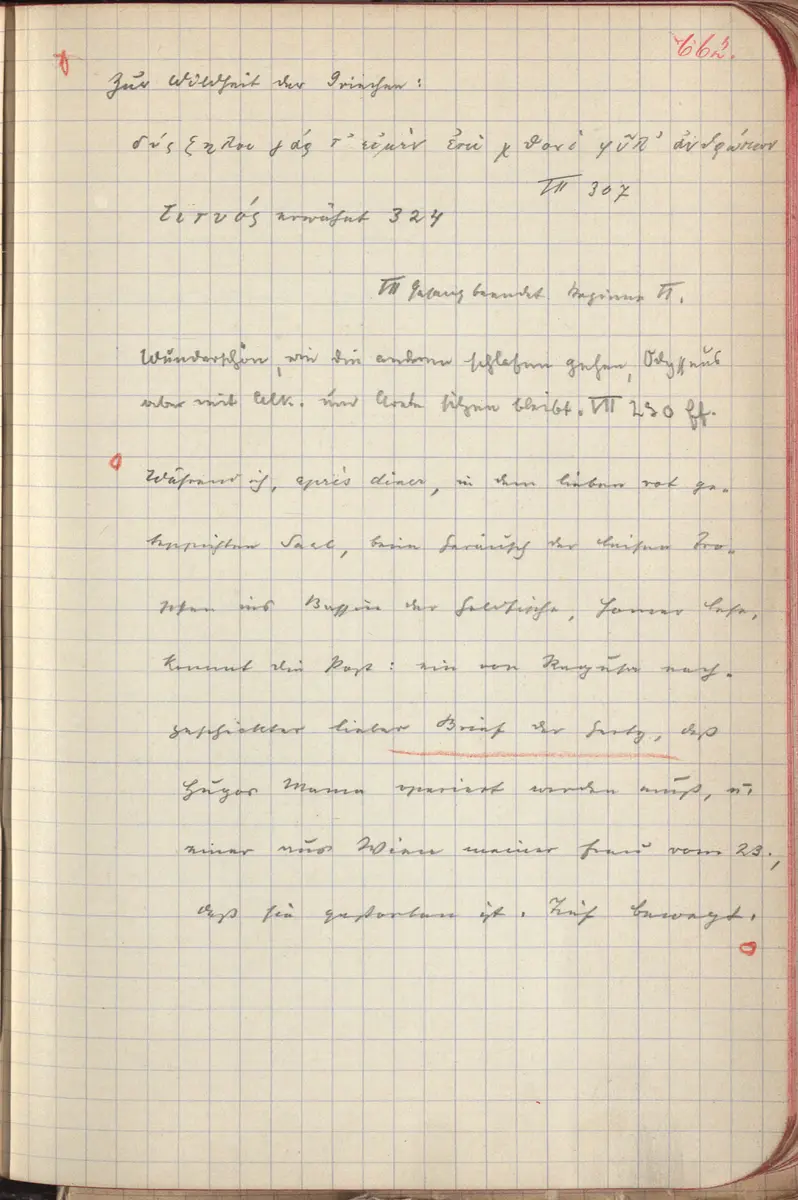 662.
Zur Wildheit der Griechen:
δύσζηλοι γάρ τ' εἰμὲν ἐπὶ χθονὶ φῦλ' ἀνθρώπων
VII 307
Τιτυός erwähnt 324
VII Gesang beendet. Beginne VI.
Wunderschön, wie die anderen schlafen gehen, Odysseus
aber mit Alk. und Arete sitzen bleibt. VII 230 ff.
Während ich, après diner, in dem lieben rot ge-
teppichten Saal, beim Geräusch der leisen Tro-
pfen ins Bassin der Goldfische, Homer lese,
kommt die Post: ein von Ragusa nach-
geschickter lieber Brief der Gerty, daß
Hugos Mama operiert werden muß, u.
einer aus Wien meiner Frau vom 23.,
daß sie gestorben ist. Tief bewegt.